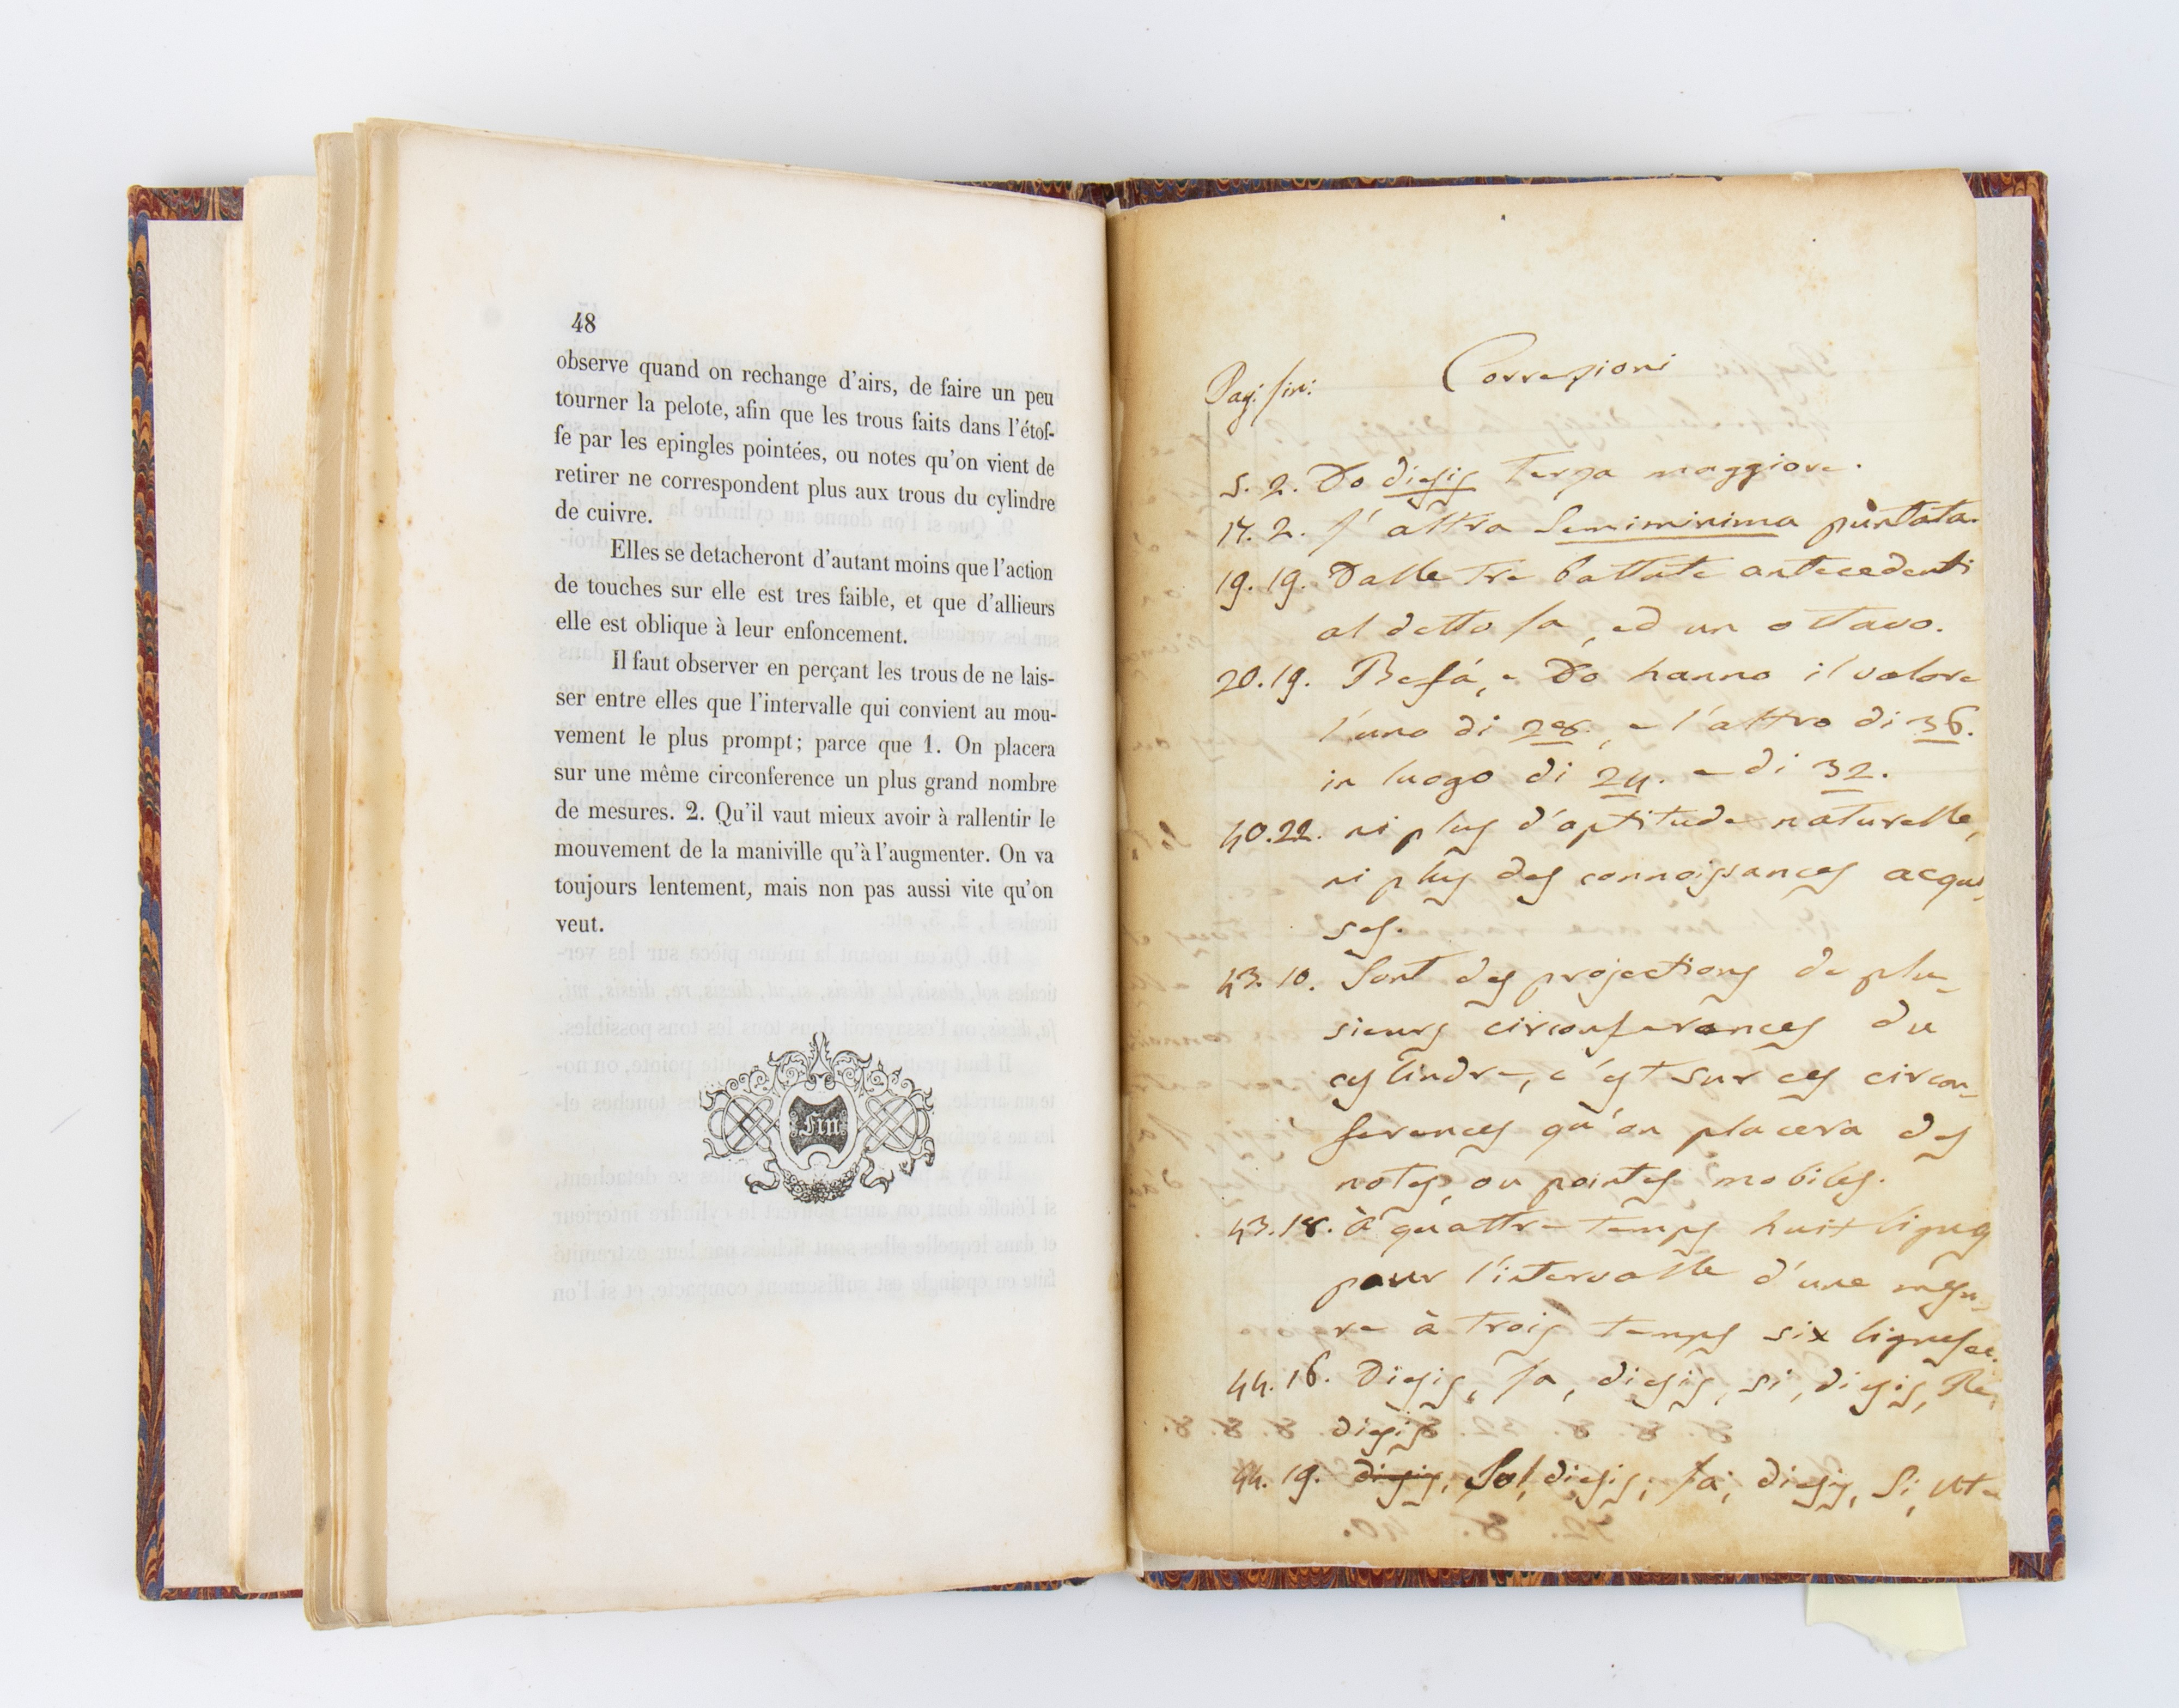 48
observe quand on rechange d'airs, de faire un peu
tourner la pelote, afin que les trous faits dans l'étof-
fe par les epingles pointées, ou notes qu'on vient de
retirer ne correspondent plus aux trous du cylindre
de cuivre.
Elles se detacheront d'autant moins que l'action
de touches sur elle est tres faible, et que d'allieurs
elle est oblique à leur enfoncement.
Il faut observer en perçant les trous de ne lais-
ser entre elles que l'intervalle qui convient au mou-
vement le plus prompt; parce que 1. On placera
sur une même circonference un plus grand nombre
de mesures. 2. Qu'il vaut mieux avoir à rallentir le
mouvement de la maniville qu'à l'augmenter. On va
toujours lentement, mais non pas aussi vite qu'on
veut.
Fin
Correzioni
Pag: lin:
5. 2. Do diesis terza maggiore.
17. 2. l'altra Semiminima puntata.
19. 19. Dalle tre battute antecedenti
al detto la, ed un ottavo.
20. 19. Befá, e Do hanno il valore
l'uno di 28., e l'altro di 36.
in luogo di 24. e di 32.
40. 22. ni plus d'aptitude naturelle,
ni plus des connoissances acqui,
ses.
43. 10. Sont des projections de plu-
sieurs circonferances du
cylindre, c'est sur ces circon-
ferences qu'on placera des
notes, ou pointes mobiles.
43. 18. à quattre temps huit lignes
pour l'intervalle d'une mesu-
re à trois temps six lignes
44. 16. Diesis, la, diesis, si, diesis, Re,
diesis
44. 19. diesis, Sol, diesis, la, diesis, Si, Ut